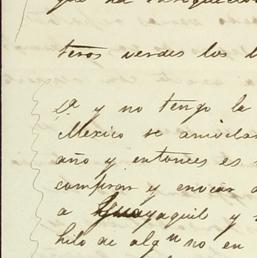 que ha
teros verdes los
Cª y no tengo la
Mexico se
año y entonces es
comprar y enviar a
a Guayaquil y
hilo de algⁿ no en